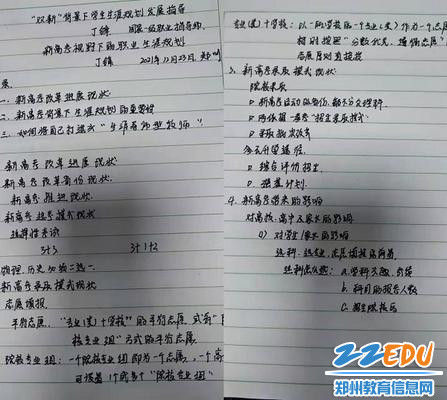 "双新"背景下学生生涯规划发展指导
丁锋 国家一级职业指导师
新高考视野下的职业生涯规划
丁锋 2021年12月23日
一、新高考改革进展现状
二、新高考背景下生涯规划的重要性
三、如何将自己打造成"生涯有师型教师"
新高考改革进展现状
新高考改革省份现状
新高考推进现状
新高考选考模式现状
选择性考试
3+3 3+1+2
物理、历史必选二选一
新高考录取模式现状
志愿填报
平行志愿："专业(类)+学校"的平行志愿 或者"院
校专业组"方式的平行志愿
院校专业组：一个院校专业组即为一个志愿，一个高
可设置1个或多个"院校专业组"
专业(类)+学校：以一所学校的一个专业(类)作为一个志
愿时按照"分数优先，遵循志愿"
志愿原则直接投
3、新高考录取模式现状
院校录取
新高考启动的省份，都不分文理科
两依据一参考"招生录取模式
录取批次改革
多元升学途径
综合评价招生
强基计划
4、新高考带来的影响
对高校、高中及家长的影响
4) 对学生/家长的影响
选科、选专业、志愿填报应前置
选科怎么选：a.学科兴趣、成绩
b.科目的报考人数
c.招生院校
22EDU
郑州教育信息网